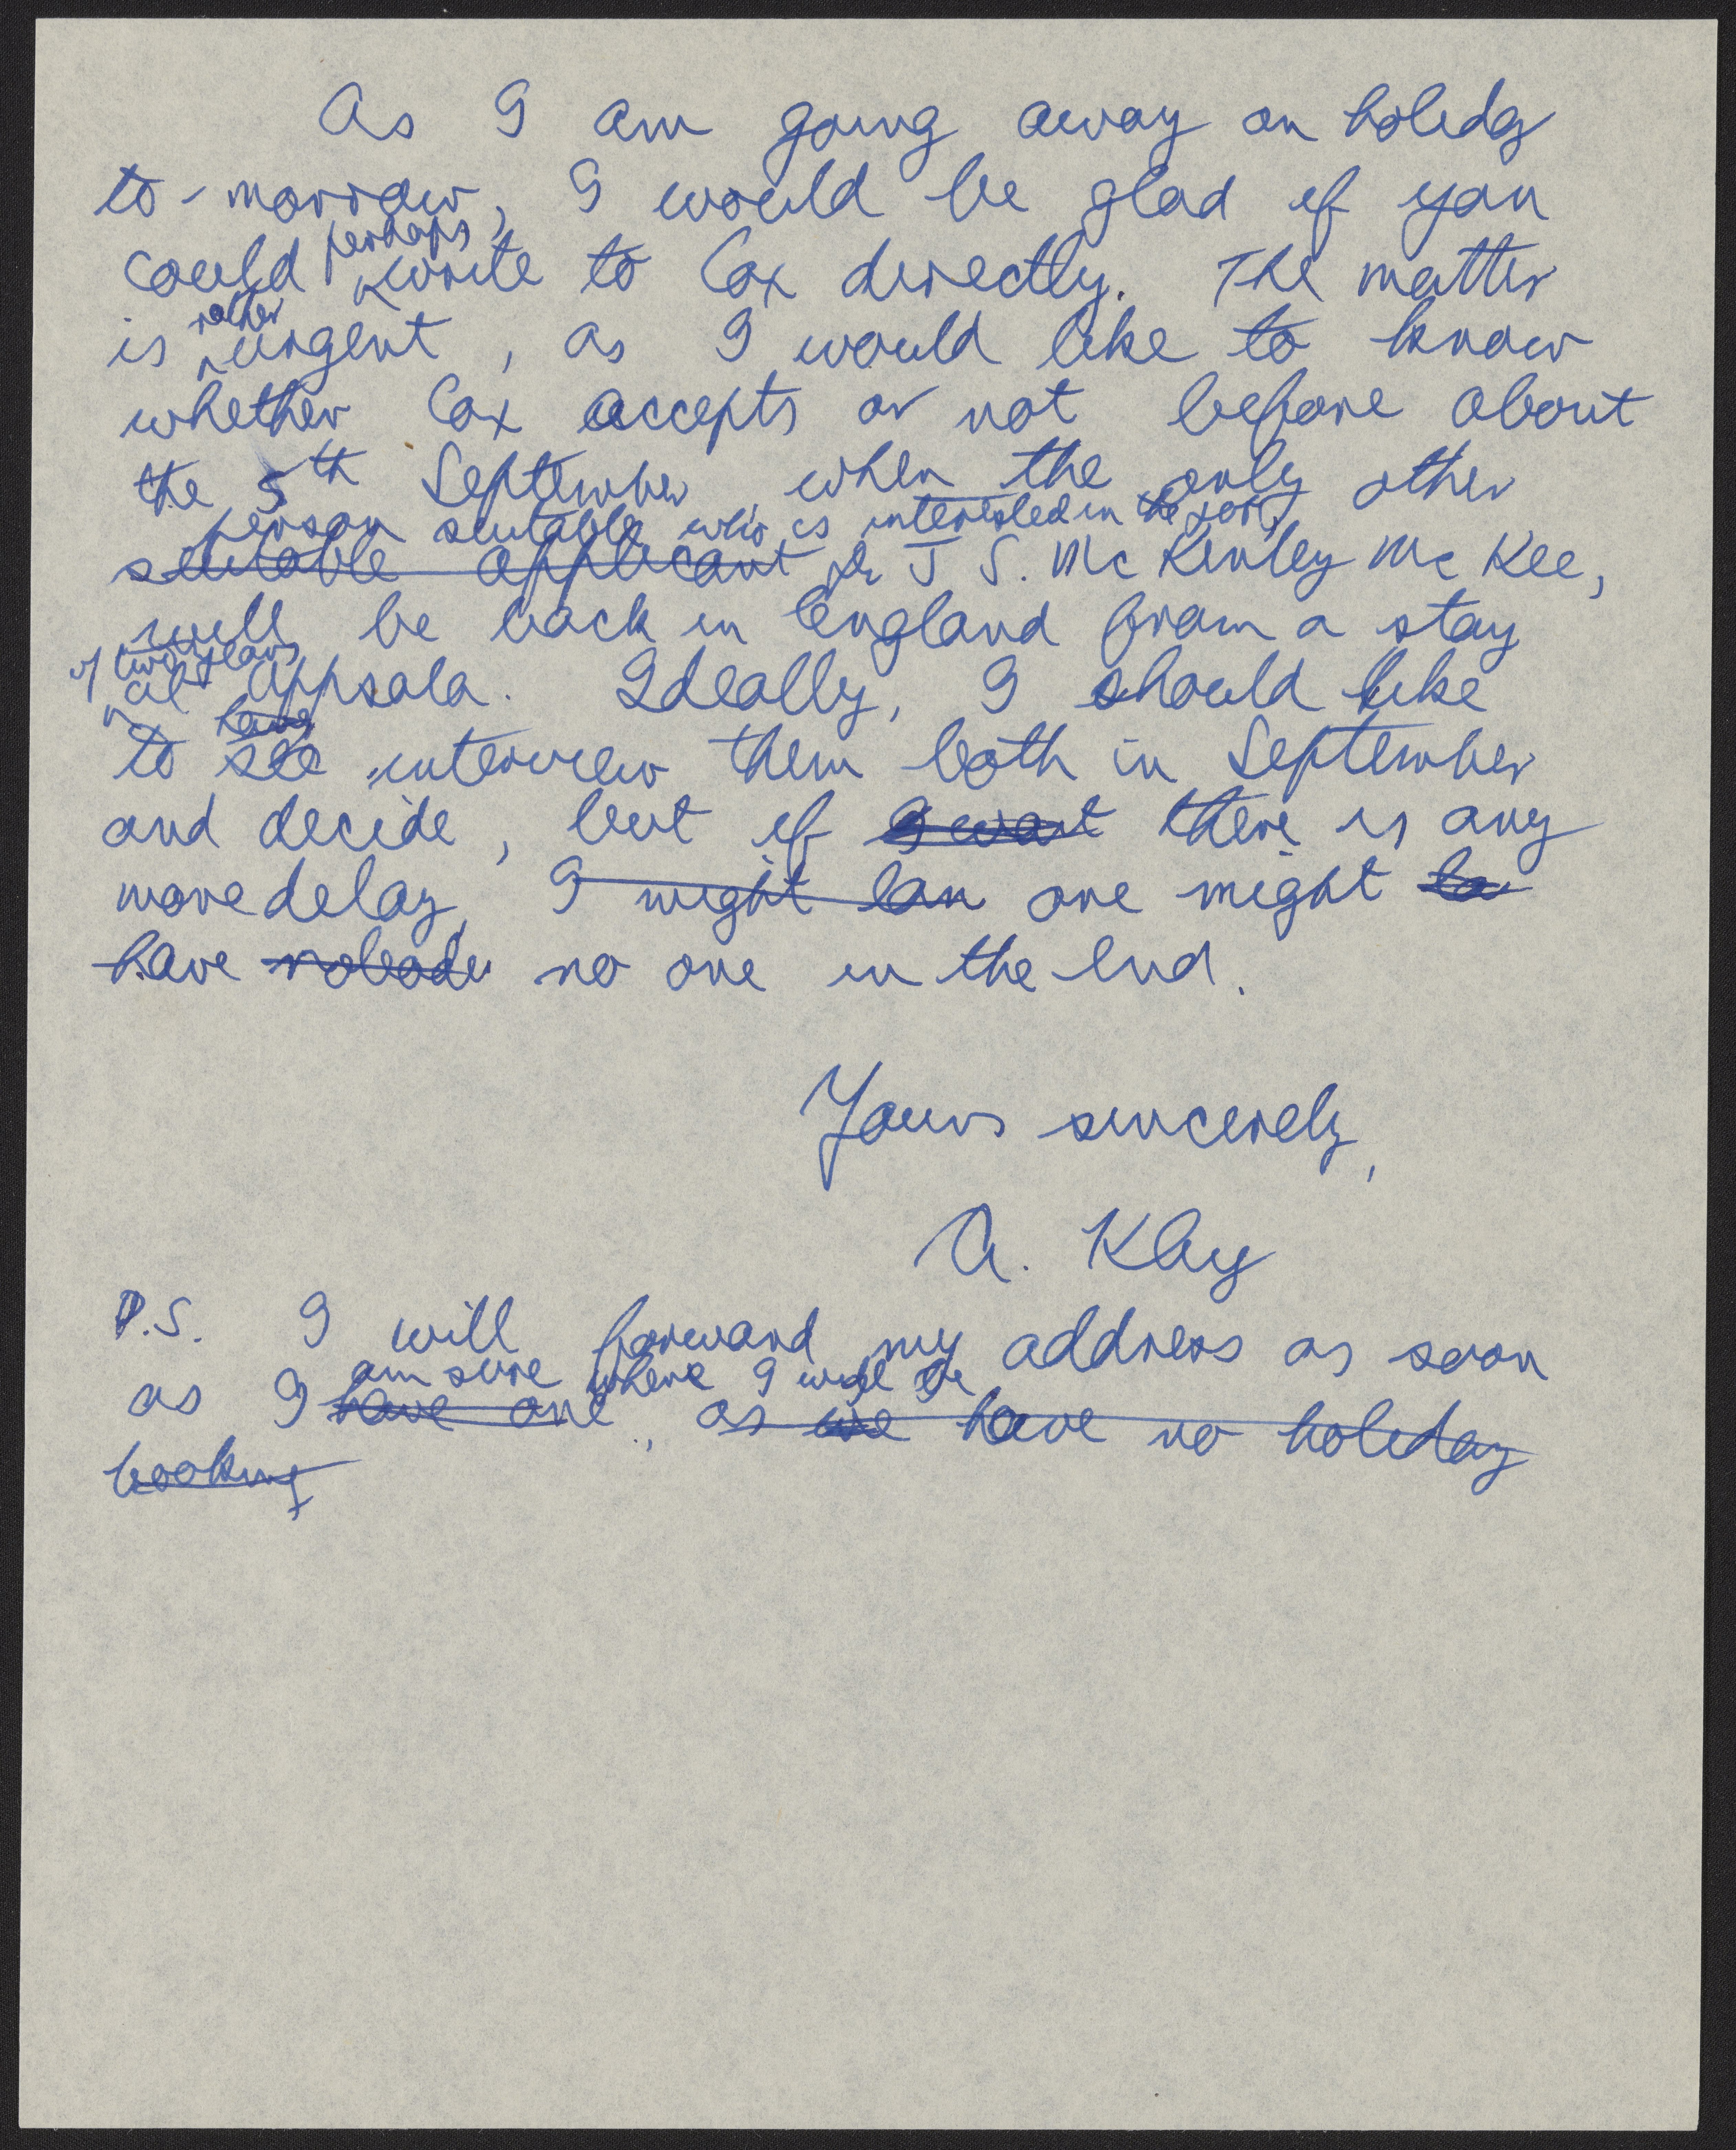 As I am going away on holiday
to-morrow, I would be glad if you
could perhaps write to Cox directly. The matter
is rather urgent, as I would like to know
whether Cox accepts or not before about
the 5th September, when the only other
person suitable who is interested in the post,
suitable applicant Dr J S. McKinley McKee,
will be back in England from a stay
of two years
at Uppsala. Ideally, I should like
have
to see interview them both in September
and decide, but if I want there is any
more delay, I might lan one might lo
have nobody no one in the end.
Yours sincerely,
A. Klug
P.S. I will forward my address as soon
am sure where I will be
as I have one, as we have no holiday
booking